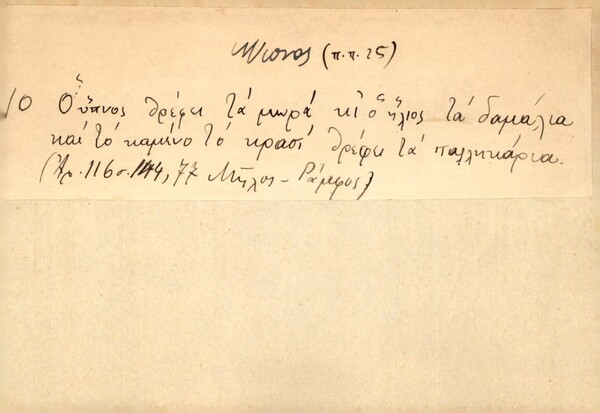 ὕπνος (π.π. 25)
10 Ὁ ὕπνος θρέφει τὰ μωρά κι ὁ ἥλιος τὰ δαμάλια
καὶ τὸ καημένο τὸ κρασὶ θρέφει τὰ παλληκάρια.
(Ἀρ. 116 σ. 144, 77 Μῆλος - Ράμφος)